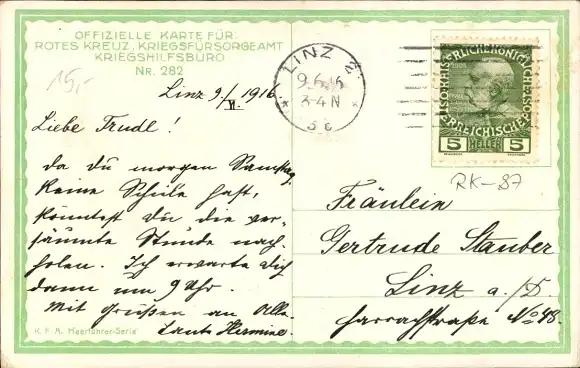 OFFIZIELLE KARTE FÜR:
ROTES KREUZ, KRIEGSFÜRSORGEAMT
KRIEGSHILFSBÜRO
NR. 282
15,-
LINZ 2
9.6.16
3-4 N
* 5c *
5 HELLER 5
RK-87
Linz 9./VI. 1916.
Liebe Trudl!
da du morgen Samstag
keine Schule hast,
könntest du die ver-
säumte Stunde nach-
holen. Ich erwarte dich
dann um 9 Uhr.
Mit Grüßen an Alle
Hermine.
Fräulein
Gertrude Stauber
Linz a./D.
Harrachstraße No 48.
K. F. A. Heerführer-Serie